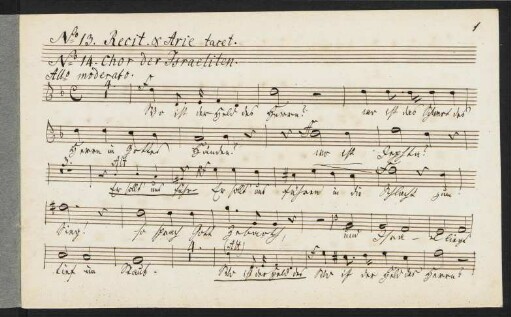 1
No 13. Recit. & Arie tacet.
No 14. Chor der Israeliten.
Allo moderato.
4.
Wo ist der Held des Herrn? wo ist das Schwert des
Herrn in Gottes Händen? wo ist Jephta?
3. Alt
Er sollt uns führ Er sollt uns führen in die Schlacht zum
Sieg! so sprach Gott Zebaoth, und
tief im Staub.
4. Alt
Wo ist der Held des Wo ist der Held des Herrn?